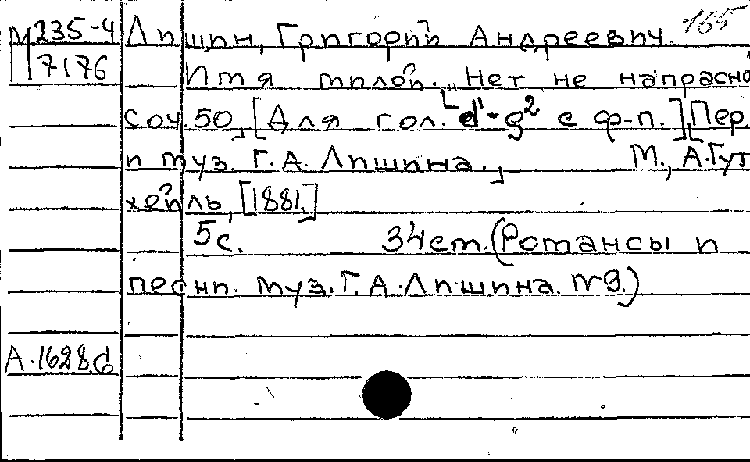 165
М 235-4 Лишин, Григорий Андреевич.
7176 Имя милой. „Нет не напрасно
Соч. 50. [Для гол. d¹-g² с ф-п.] Пер.
и муз. Г. А. Лишина. М., А. Гут
хейль, [1881.]
5 с. 34 см. (Романсы и
песни. муз. Г. А. Лишина. №9.)
А. 1628